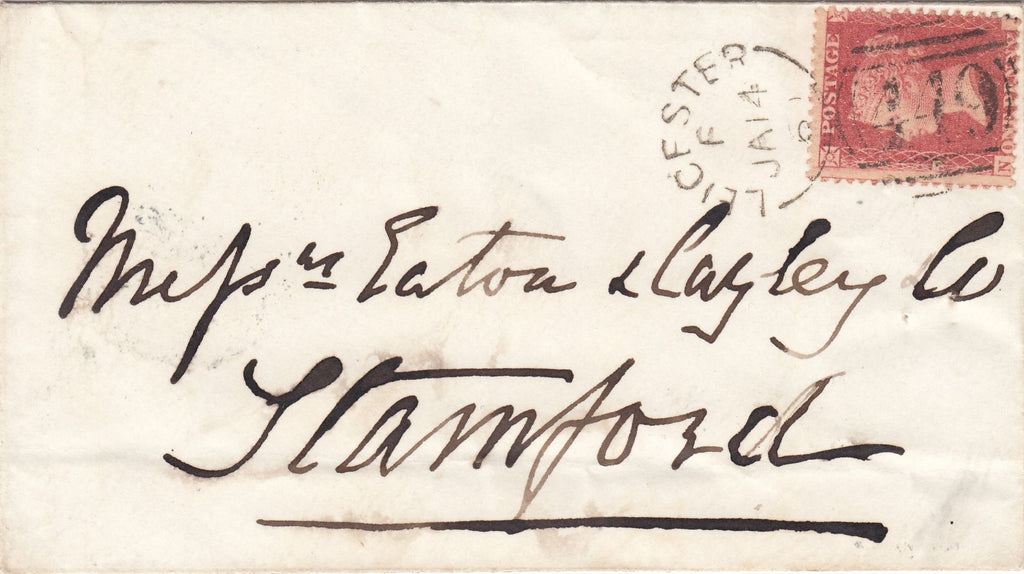 LEICESTER
F
JA 14
POSTAGE
449
Messrs Eaton & Cayley Co
Stamford